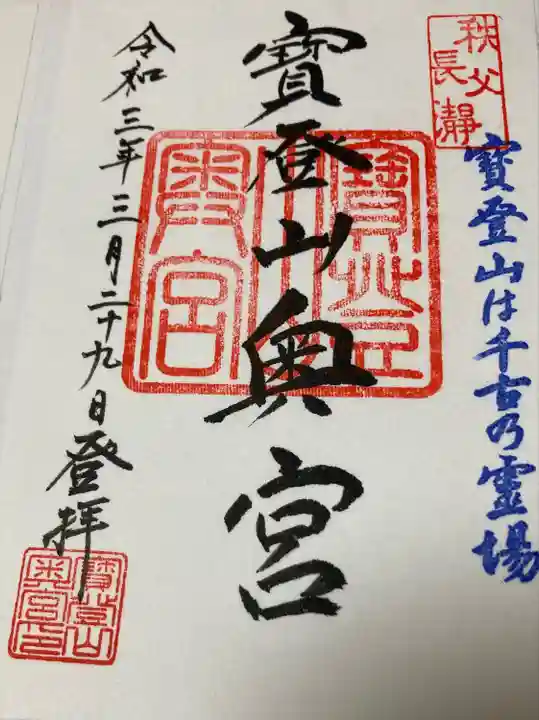 秩父
長瀞
寳登山は千古乃霊場
寳登山奥宮
寳登山
奥宮
令和三年三月二十九日登拝
寳登山
奥宮印